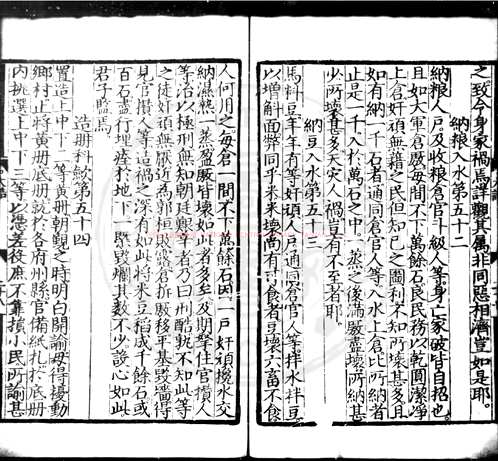 之致今身家禍焉詳觀其屬非同惡相濟豈如是耶
納粮入水第五十二
納粮人戶及收粮倉官斗級人等身亡家破皆自招也
且如大軍倉厫每間不下萬餘石良民務以乾圓潔凈
上倉奸頑無藉之民但知己之圖利不知所壞甚多且
如有納一千石者通同倉官人等入水上倉比所納者
止是一千入於萬石之中一蒸之後滿厫盡壞所納甚
少所壞甚多天灾人禍豈有不至者耶
納豆入水第五十三
馬料豆年年有等奸頑人戶通同倉官人等拌水拌豆
以增斛面弊同乎米米壞尚有可食者豆壞六畜不食
人何用之每倉一間不下萬餘石因一戶奸頑攙水交
納濕熱一蒸盈厫皆壞如此者多至及期拏住官攅人
等治以極刑無知朝廷艱辛者乃曰刑酷孰不知此等
之徒奸頑厭近為郭桓敗露倉拆厫移平基毀牆得
見官攅人等造禍之深有如此將米豆稻成千餘石或
百石盡行埋瘞於地下一槩毀爛其數不少設心如此
君子鑑焉
造册科歛第五十四
置造上中下三等黄册朝覲之時明白開諭毋得擾動
鄉村止將黄册底册就於各府州縣官備紙札於底册
内挑選上中下三等以憑差徭庶不靠損小民所諭甚